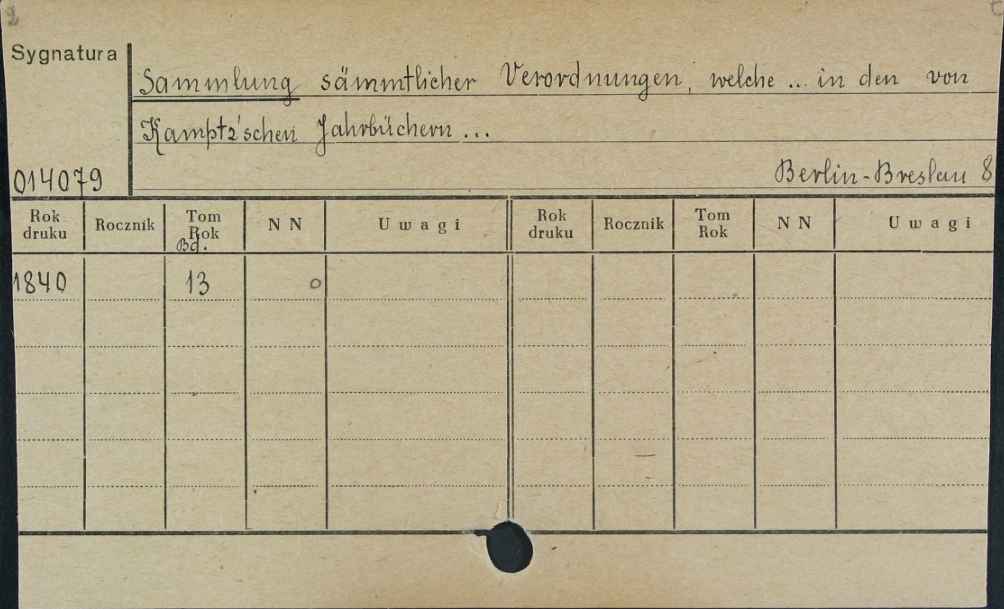 2
Sygnatura
Sammlung sämmtlicher Verordnungen, welche ... in den von
Kamptz'schen Jahrbüchern ...
014079
Berlin-Breslau 8
Rok druku Rocznik Tom Rok Bd. N N Uwagi Rok druku Rocznik Tom Rok N N Uwagi
1840 13 o